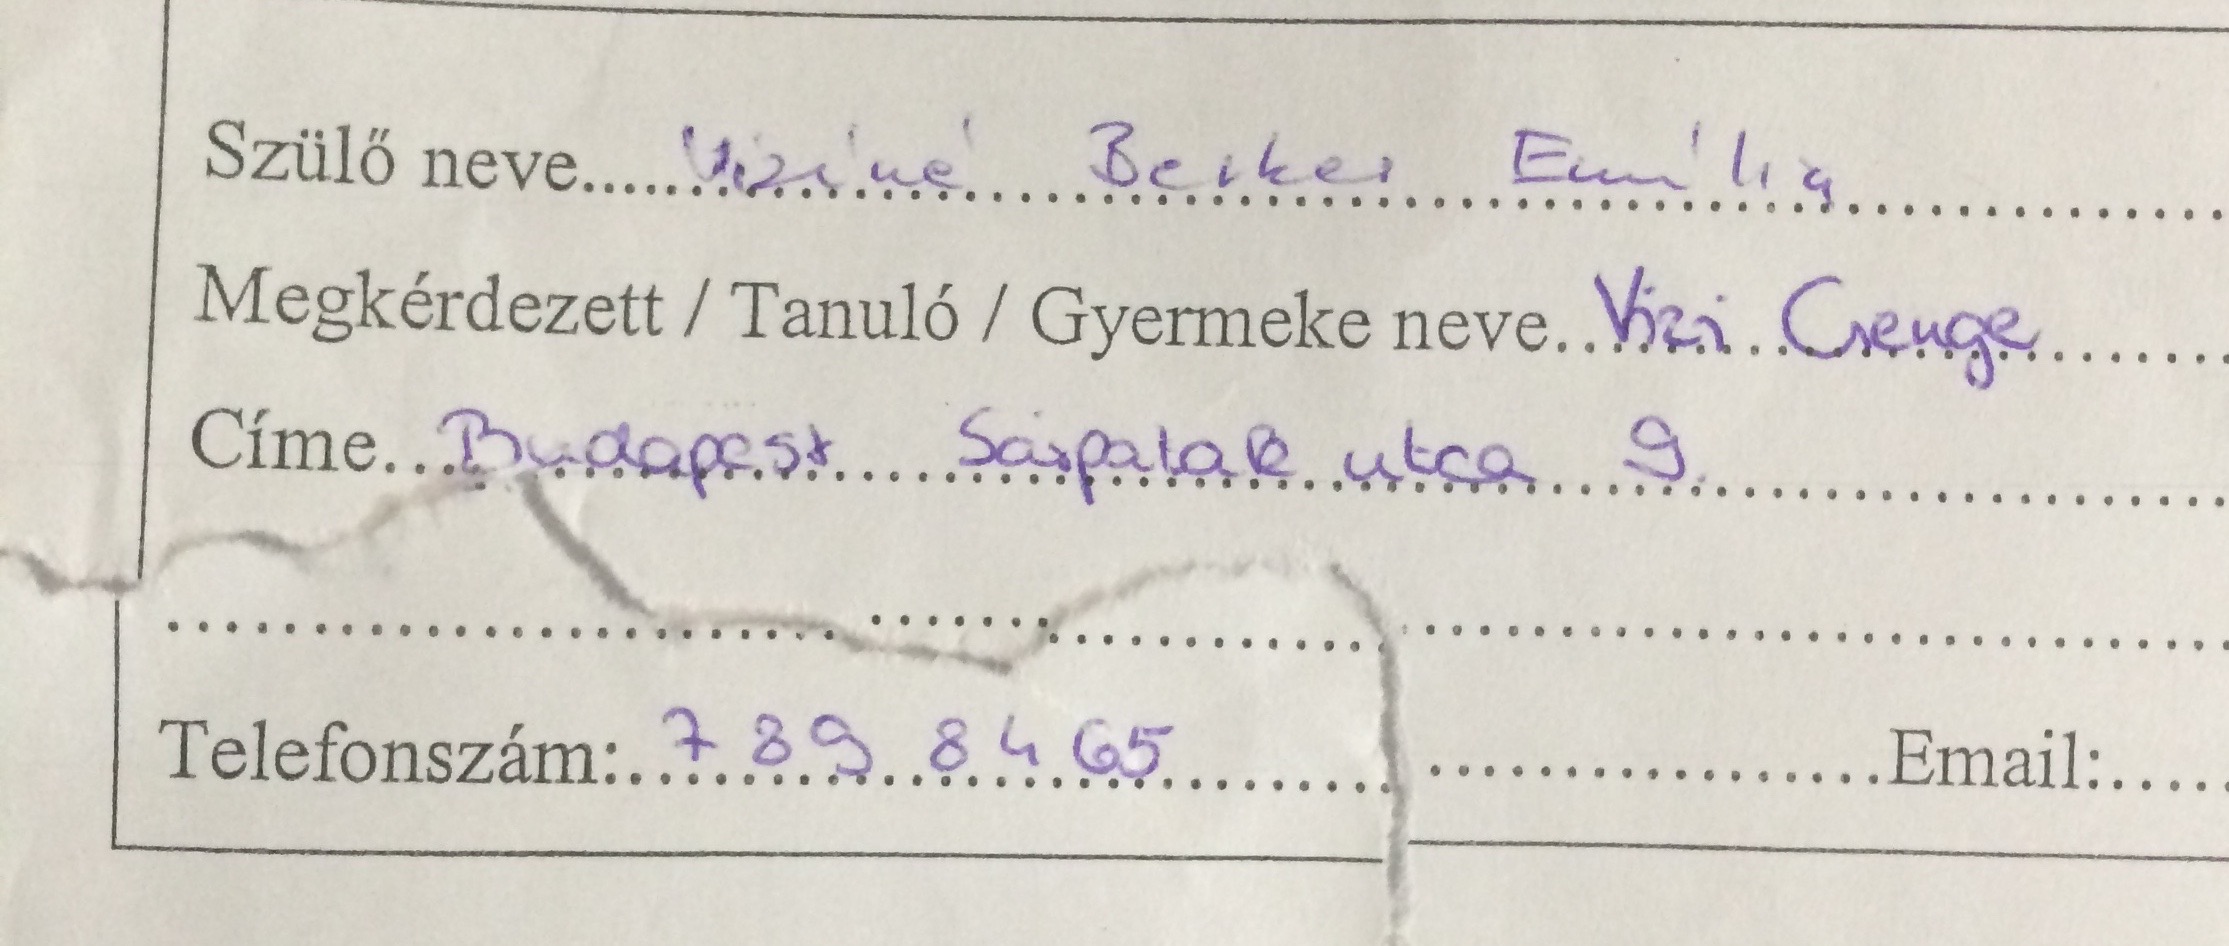 Szülő neve..... Viziné Berkes Emília
Megkérdezett / Tanuló / Gyermeke neve.. Vizi Csenge
Címe... Budapest Sárpatak utca 9.
Telefonszám: 789 8465 Email:.....